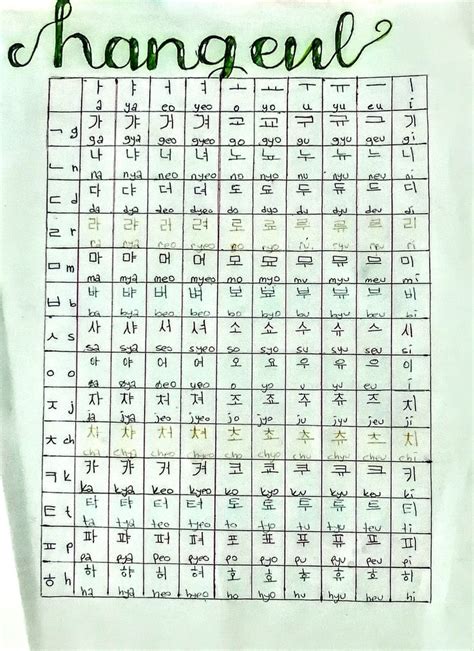 hangeul
ㅏ ㅑ ㅓ ㅕ ㅗ ㅛ ㅜ ㅠ ㅡ ㅣ
a ya eo yeo o yo u yu eu i
ㄱ g 가 갸 거 겨 고 교 구 규 그 기
ga gya geo gyeo go gyo gu gyu geu gi
ㄴ n 나 냐 너 녀 노 뇨 누 뉴 느 니
na nya neo nyeo no nyo nu nyu neu ni
ㄷ d 다 댜 더 뎌 도 됴 두 듀 드 디
da dya deo dyeo do dyo du dyu deu di
ㄹ r 라 랴 러 려 로 료 루 류 르 리
ra rya reo ryeo ro ryo ru ryu reu ri
ㅁ m 마 먀 머 며 모 묘 무 뮤 므 미
ma mya meo myeo mo myo mu myu meu mi
ㅂ b 바 뱌 버 벼 보 뵤 부 뷰 브 비
ba bya beo byeo bo byo bu byu beu bi
ㅅ s 사 샤 서 셔 소 쇼 수 슈 스 시
sa sya seo syeo so syo su syu seu si
ㅇ o 아 야 어 여 오 요 우 유 으 이
øa øya øeo øyeo o yo u yu eu i
ㅈ j 자 쟈 저 져 조 죠 주 쥬 즈 지
ja jya jeo jyeo jo jyo ju jyu jeu ji
ㅊ ch 차 챠 처 쳐 초 쵸 추 츄 츠 치
cha chya cheo chyeo cho chyo chu chyu cheu chi
ㅋ k 카 캬 커 켜 코 쿄 쿠 큐 크 키
ka kya keo kyeo ko kyo ku kyu keu ki
ㅌ t 타 탸 터 텨 토 툐 투 튜 트 티
ta tya teo tyeo to tyo tu tyu teu ti
ㅍ p 파 퍄 퍼 펴 포 표 푸 퓨 프 피
pa pya peo pyeo po pyo pu pyu peu pi
ㅎ h 하 햐 허 혀 호 효 후 휴 흐 히
ha hya heo hyeo ho hyo hu hyu heu hi